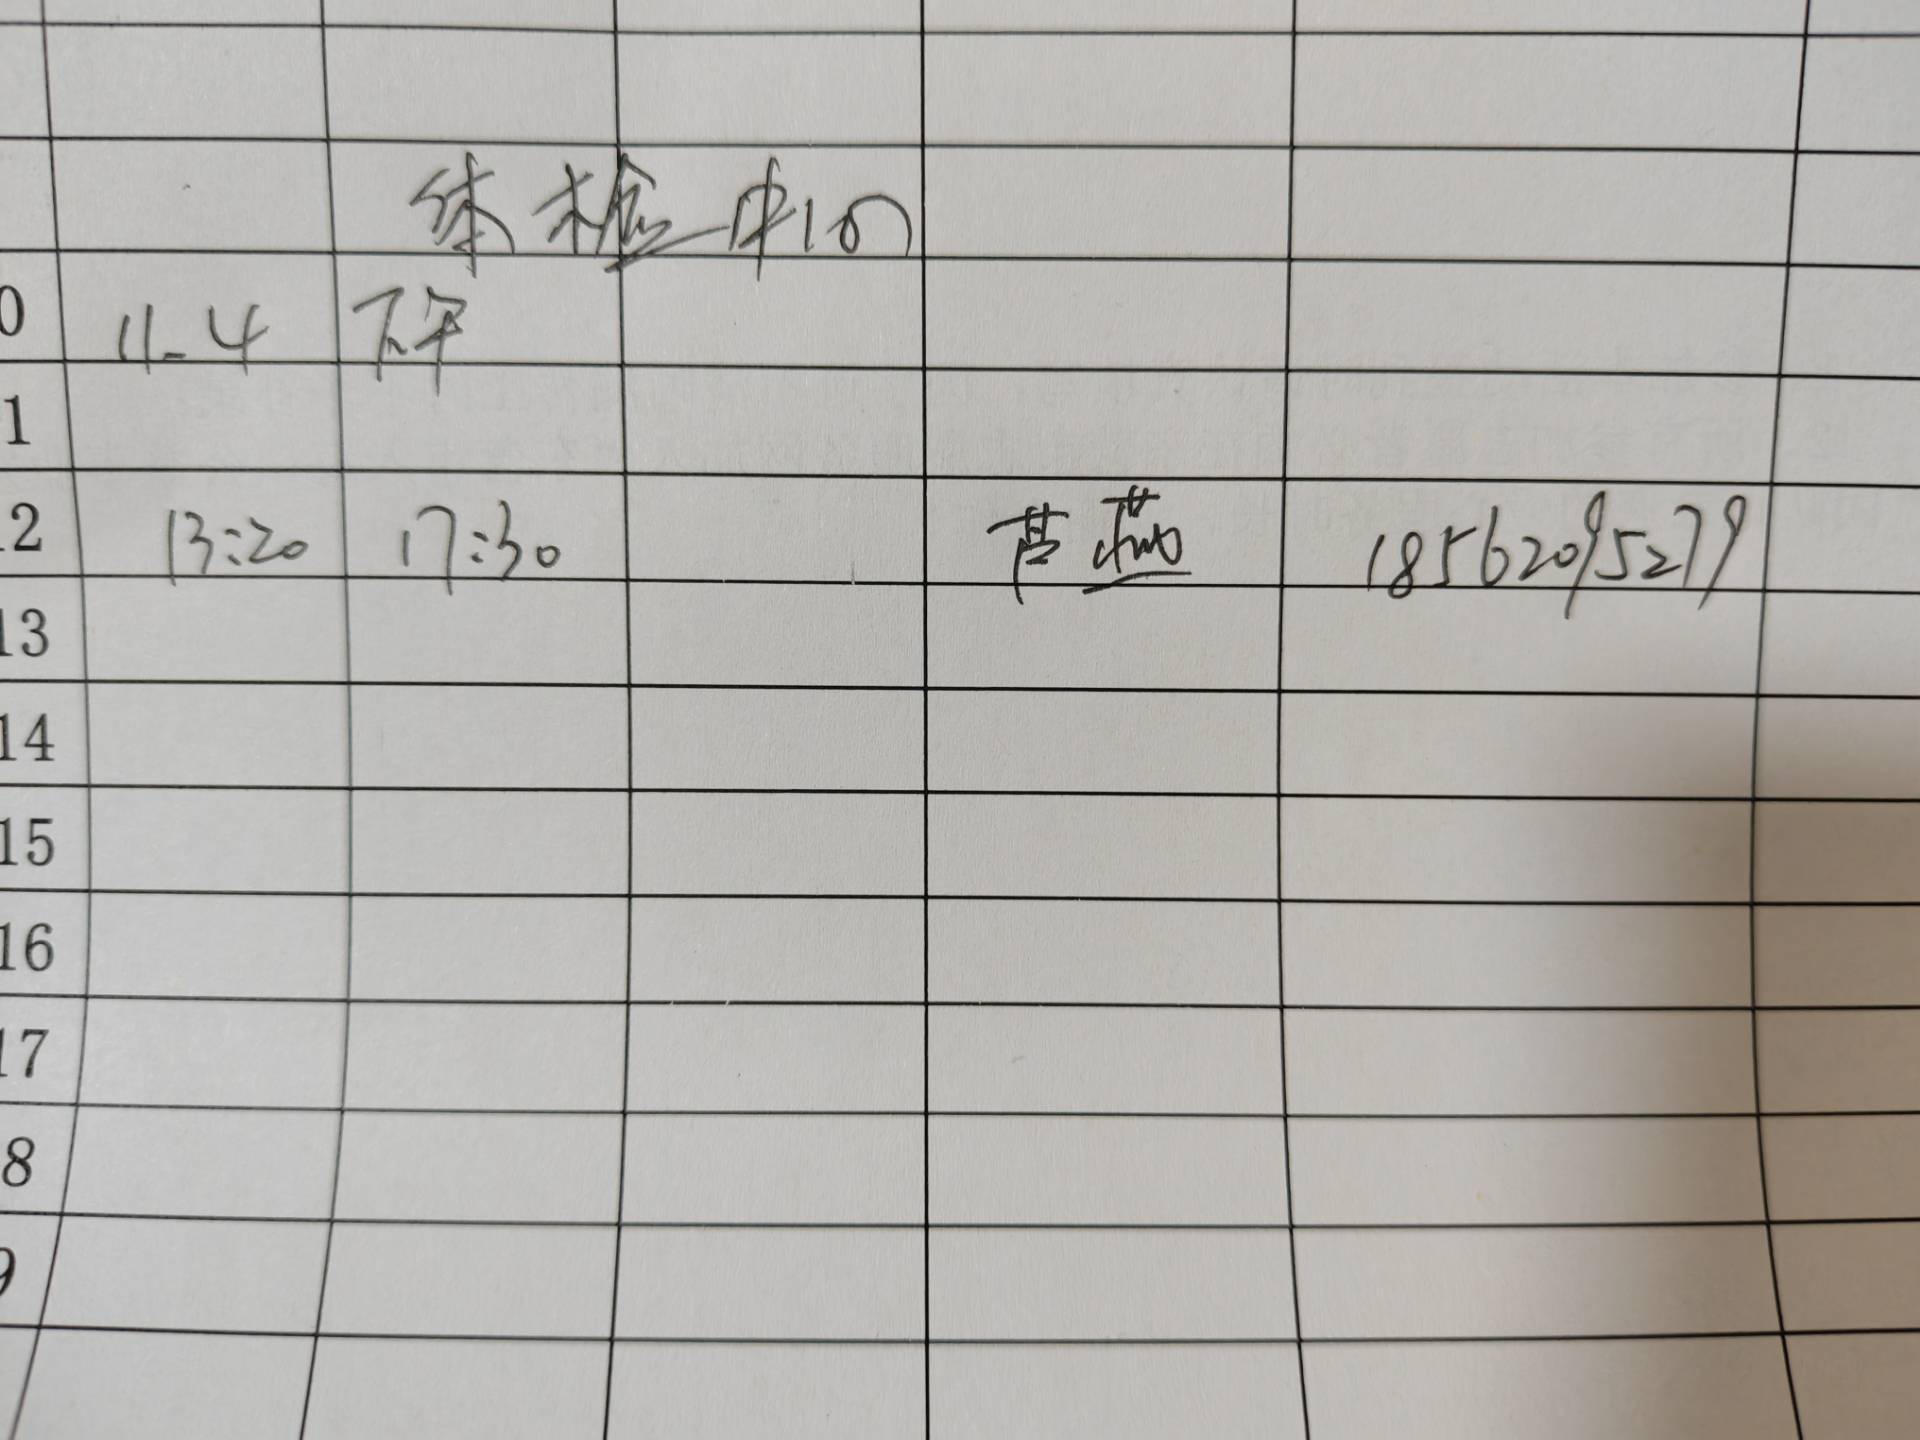 体检中心
0 11-4 下午
1
12 13:20 17:30 芦燕 18562095279
13
14
15
16
17
8
9